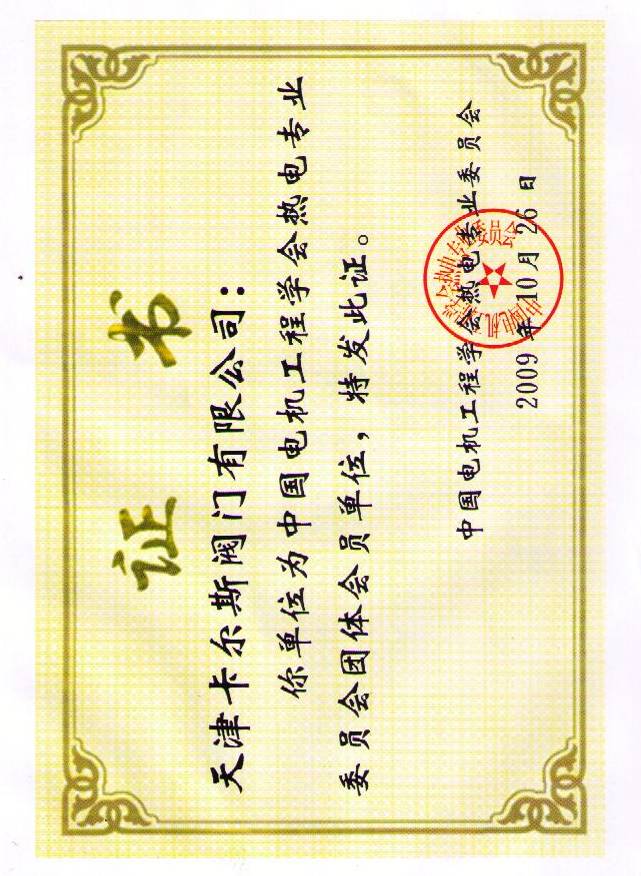 证书
天津卡尔斯阀门有限公司：
你单位为中国电机工程学会热电专业
委员会团体会员单位，特发此证。
中国电机工程学会热电专业委员会
2009 年 10 月 26 日
中国电机工程学会热电专业委员会